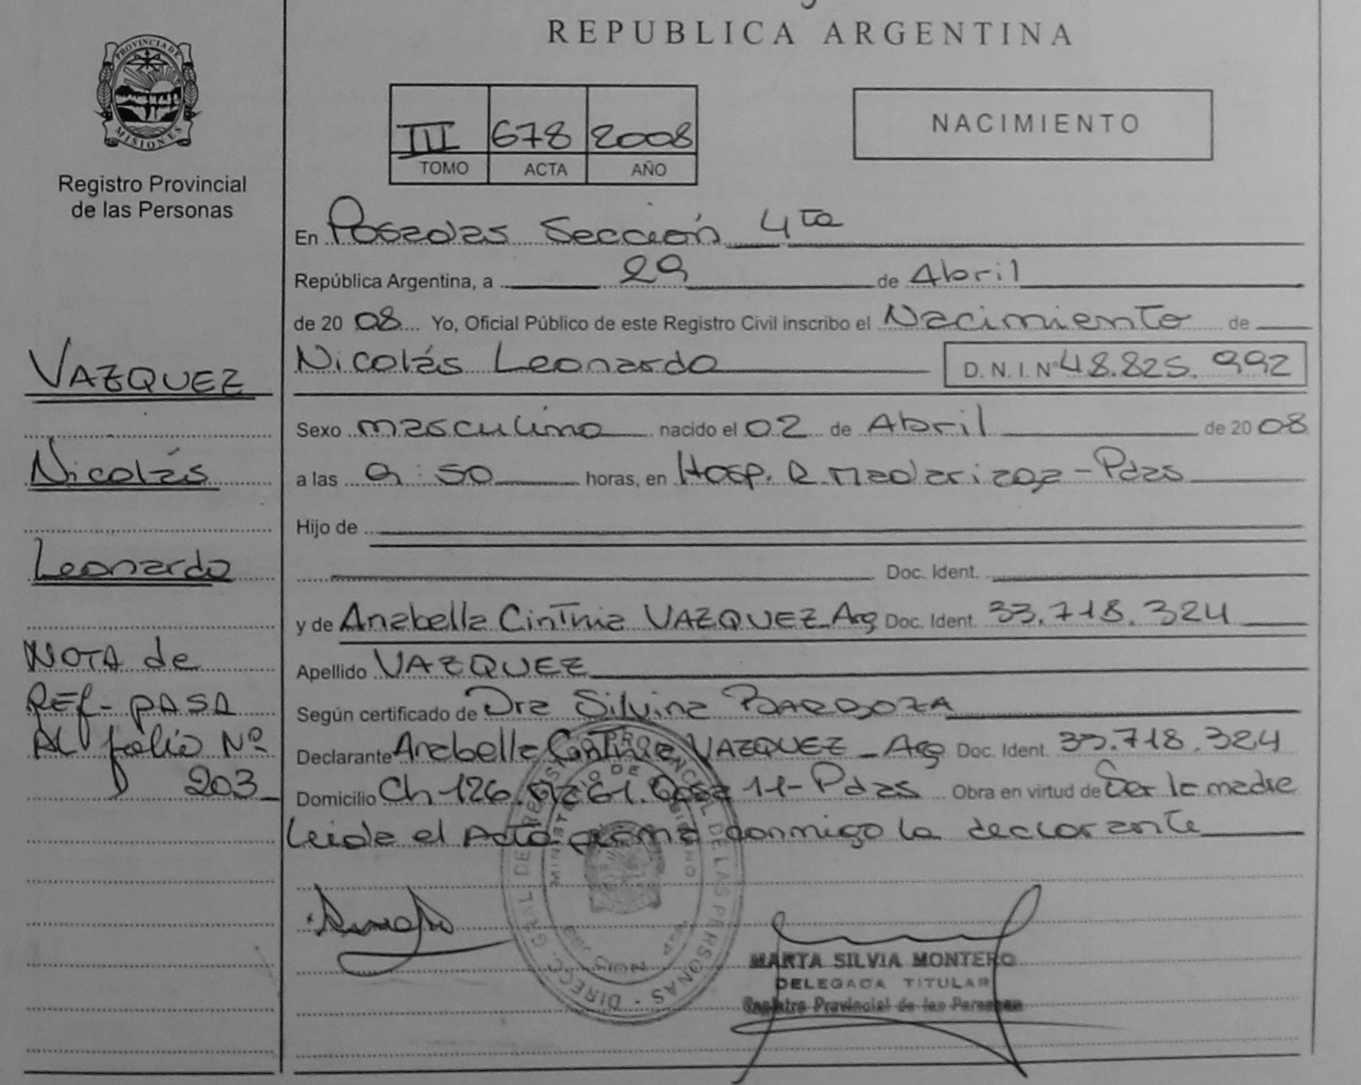 REPUBLICA ARGENTINA
PROVINCIA DE MISIONES
Registro Provincial
de las Personas
III 678 2008
TOMO ACTA AÑO
NACIMIENTO
En Posadas Sección 4ta
República Argentina, a 29 de Abril
de 20 08 Yo, Oficial Público de este Registro Civil inscribo el Nacimiento de
Nicolás Leonardo D. N. I. Nº 48.825.992
Sexo masculino nacido el 02 de Abril de 20 08
a las 9:50 horas, en Hosp. R. Madariaga - Pdas
Hijo de
Doc. Ident.
y de Anabella Cinthia VAZQUEZ Arg Doc. Ident. 33.718.324
Apellido VAZQUEZ
Según certificado de Dra Silvina BARBOZA
Declarante Anabella Cinthia VAZQUEZ - Arg Doc. Ident. 33.718.324
Domicilio Ch 126 Casa 11 - Pdas Obra en virtud de Ser la madre
Leida el Acta firma conmigo la declarante
VAZQUEZ
Nicolás
Leonardo
NOTA de
REF- PASA
AL folio Nº
203
DIRECC. GRAL. DE REGISTRO PROVINCIAL DE LAS PERSONAS
MINISTERIO DE
MARTA SILVIA MONTERO
DELEGADA TITULAR
Registro Provincial de las Personas